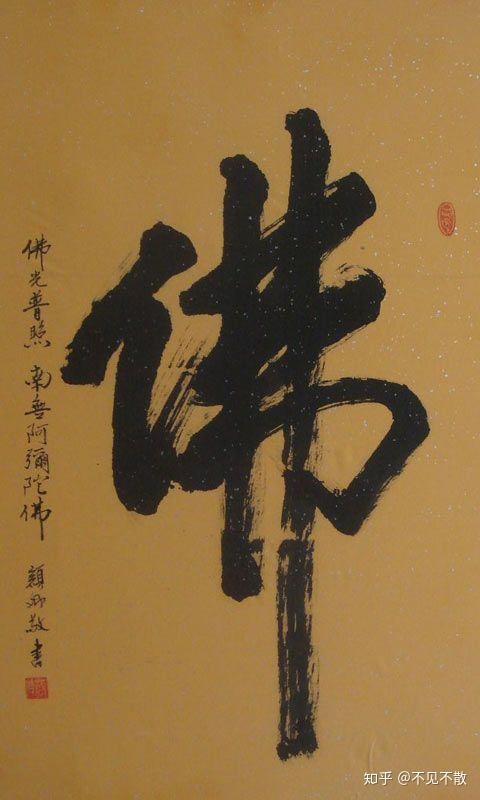 佛
佛光普照 南無阿彌陀佛 穎卿敬書
知乎 @不见不散